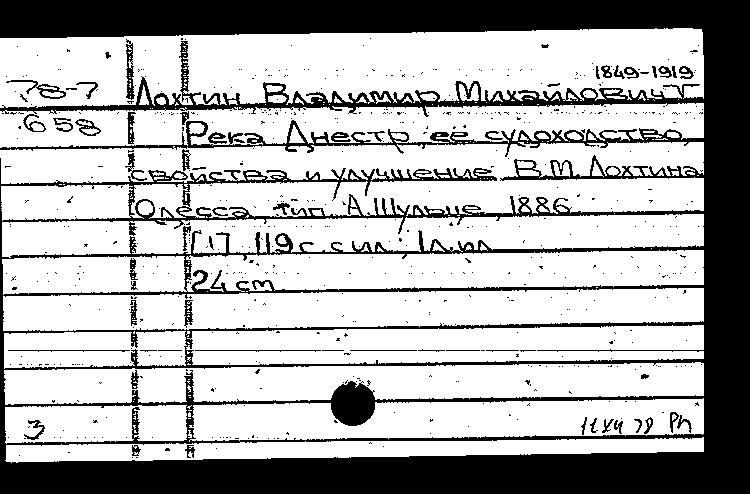 1849-1919
78-7 Лохтин, Владимир Михайлович
658 Река Днестр, её судоходство,
свойства и улучшение В.М. Лохтина
Одесса, тип. А. Шульце, 1886
[1], 119 с. с ил.; 1 л. ил
24 cm
3